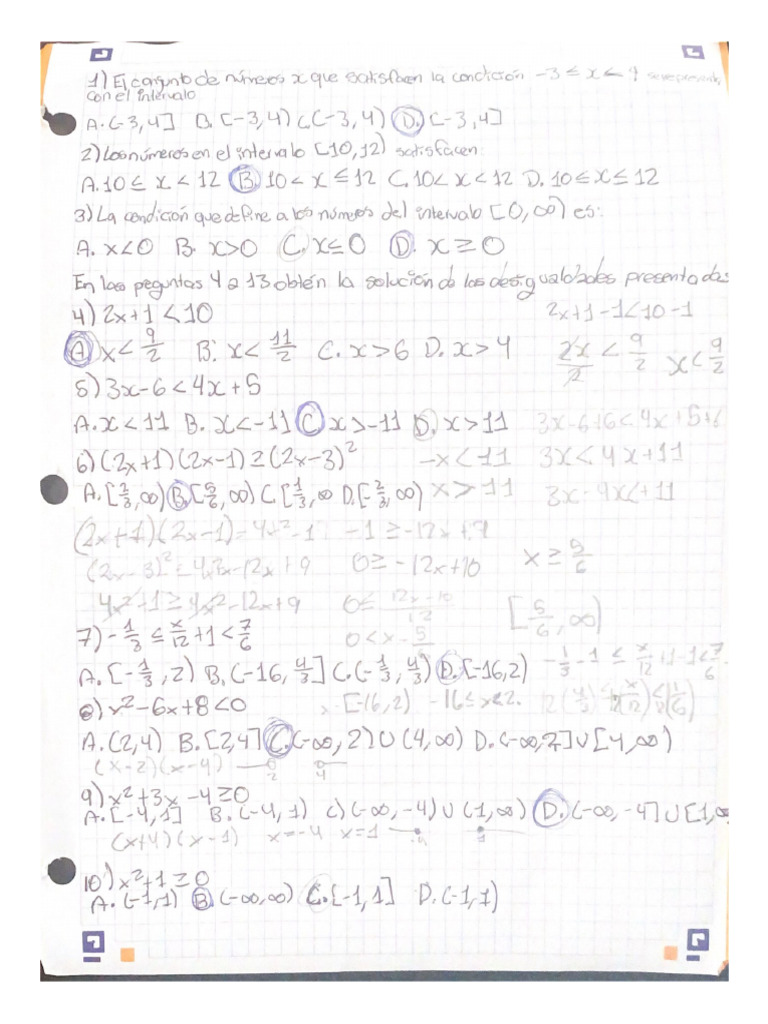 1) El conjunto de números x que satisfacen la condición -3 ≤ x < 4
con el intervalo
A. (-3,4] B. [-3,4) C. (-3,4) D. [-3,4]
2) Los números en el intervalo [10,12) satisfacen:
A. 10 ≤ x < 12 B. 10 < x ≤ 12 C. 10 < x < 12 D. 10 ≤ x ≤ 12
3) La condición que define a los números del intervalo [0,∞) es:
A. x<0 B. x>0 C. x≤0 D. x≥0
En las peguntas 4 a 13 obtén la solución de las desigualdades presentadas
4) 2x+1<10 2x+1-1<10-1
A) x<9/2 B. x<11/2 C. x>6 D. x>4 2x/2 < 9/2 x<9/2
5) 3x-6<4x+5
A. x<11 B. x<-11 C. x>-11 D. x>11 3x-6+6<4x+5+6
6) (2x+1)(2x-1)≥(2x-3)² -x<11 3x<4x+11
A. [2/3,∞) B. [5/6,∞) C. [1/3,∞ D. [-2/3,∞) x>11 3x-4x<+11
(2x+1)(2x-1)=4x²-1 -1≥-12x+9
(2x-3)²=4x²-12x+9 0≥-12x+10 x≥5/6
4x²+1≥4x²-12x+9 0≤ 12x-10/12 [5/6,∞)
7) -1/3 ≤ x/12 +1< 7/6 0<x-5/6
A. [-1/3,2) B. (-16,4/3] C. (-1/3,4/3) D. [-16,2) -1/3-1 ≤ x/12+1-1<7/6
8) x²-6x+8<0 x [-16,2) -16≤x<2.
A. (2,4) B. [2,4] C. (-∞,2)∪(4,∞) D. (-∞,2]∪[4,∞)
(x-2)(x-4) 2 4
9) x²+3x-4≥0
A. [-4,1] B. (-4,1) C) (-∞,-4)∪(1,∞) D. (-∞,-4]∪[1,∞
(x+4)(x-1) x=-4 x=1 -4 1
10) x²+1≥0
A. (-1,1) B. (-∞,∞) C. [-1,1] D. (-1,1)